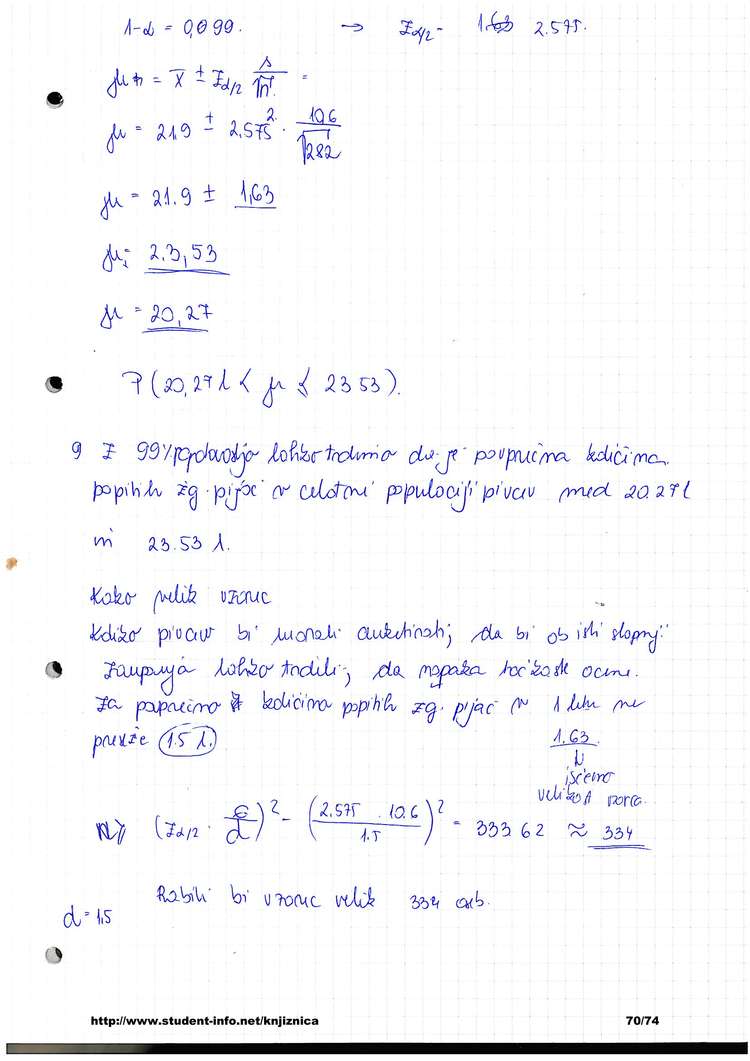 1-α = 0,099. → Zα/2 = 2.575.
μ = x̄ ± Zα/2 s/√n =
μ = 21,9 ± 2,575 · 10,6/√282
μ = 21.9 ± 1,63
μ = 23,53
μ = 20,27
P(20,27 l < μ < 23 53).
9 Z 99% lahko trdimo da je povprečna količina
popitih žg. pijač v celotni populaciji pivcev med 20.27 l
in 23.53 l.
Kako velik vzorec
Koliko pivcev bi morali anketirati, da bi ob isti stopnji
zaupanja lahko trdili, da napaka točkoste ocene.
Za količino popitih žg. pijač v 1 letu ne
1.5 l.
1.63
iščemo
velikost vzorca.
n ≥ (Zα/2 · σ/d)² = (2.575 . 10.6 / 1.5)² = 333 62 ≈ 334
d = 1,5
Rabili bi vzorec velik 334 oseb.
http://www.student-info.net/knjiznica 70/74